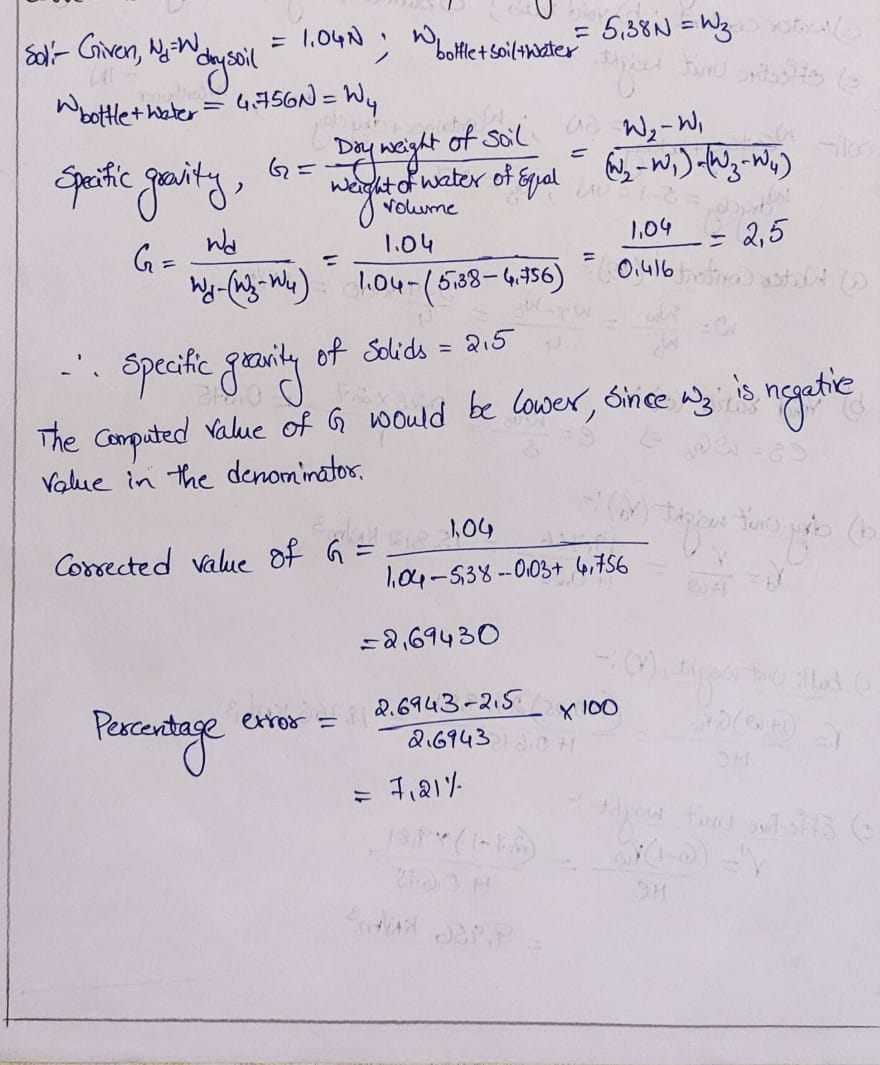 Sol:- Given, Wd=W dry soil = 1.04N ; W bottle+soil+water = 5.38N = W3
W bottle+water = 4.756N = W4
Specific gravity, G = Dry weight of soil / Weight of water of Equal volume = W2-W1 / (W2-W1)-(W3-W4)
G = Wd / Wd-(W3-W4) = 1.04 / 1.04-(5.38-4.756) = 1.04 / 0.416 = 2.5
∴ Specific gravity of Solids = 2.5
The Computed Value of G would be lower, Since W3 is negative
Value in the denominator.
Corrected value of G = 1.04 / 1.04-5.38--0.03+4.756
= 2.69430
Percentage error = 2.6943-2.5 / 2.6943 x 100
= 7.21%